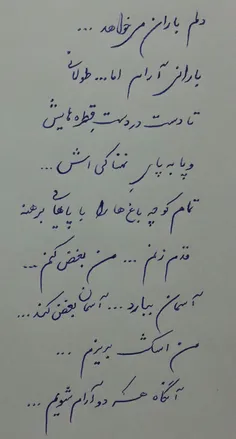 دلم باران می‌خواهد ...
بارانی آرام اما... طولانی
تا دست در دستِ قطره‌هایش
و پا به پایِ نمناکی‌اش ...
تمام کوچه باغ‌ها را با پاهایی برهنه
قدم زنم ... من بغض کنم ...
آسمان ببارد ... آسمان بغض کند ...
من اشک بریزم ...
آنگاه هر دو آرام شویم ...